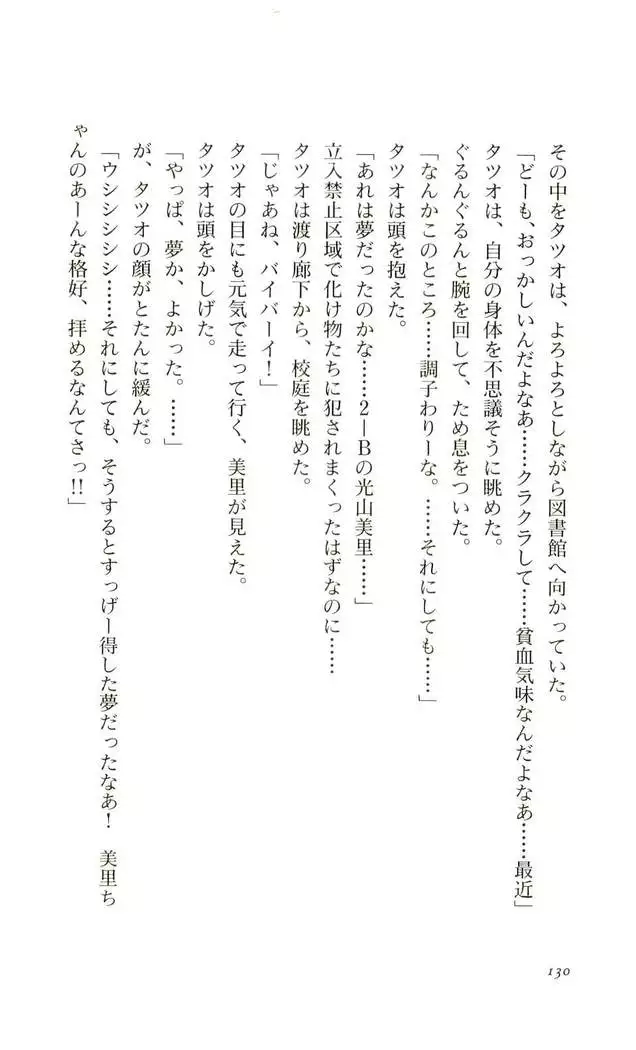 その中をタツオは、よろよろとしながら図書館へ向かっていた。
「どーも、おっかしいんだよなあ……クラクラして……貧血気味なんだよなあ……最近」
タツオは、自分の身体を不思議そうに眺めた。
ぐるんぐるんと腕を回して、ため息をついた。
「なんかこのところ……調子わりーな。……それにしても……」
タツオは頭を抱えた。
「あれは夢だったのかな……2―Bの光山美里……」
立入禁止区域で化け物たちに犯されまくったはずなのに……
タツオは渡り廊下から、校庭を眺めた。
「じゃあね、バイバーイ！」
タツオの目にも元気で走って行く、美里が見えた。
タツオは頭をかしげた。
「やっぱ、夢か、よかった。……」
が、タツオの顔がとたんに緩んだ。
「ウシシシシシ……それにしても、そうするとすっげー得した夢だったなあ！　美里ち
ゃんのあーんな格好、拝めるなんてさっ!!」
130